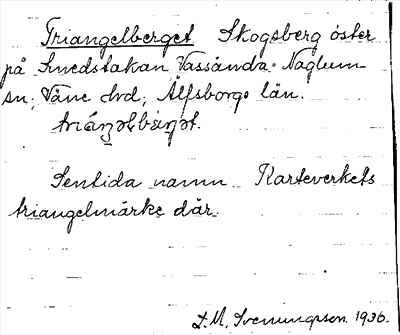 Triangelberget Skogsberg öster
på Smedstakan Vassända-Naglum
sn; Väne hrd; Älfsborgs län.
Sentida namn. Kartverkets
triangelmärke där.
J. M. Svenungsson. 1936.